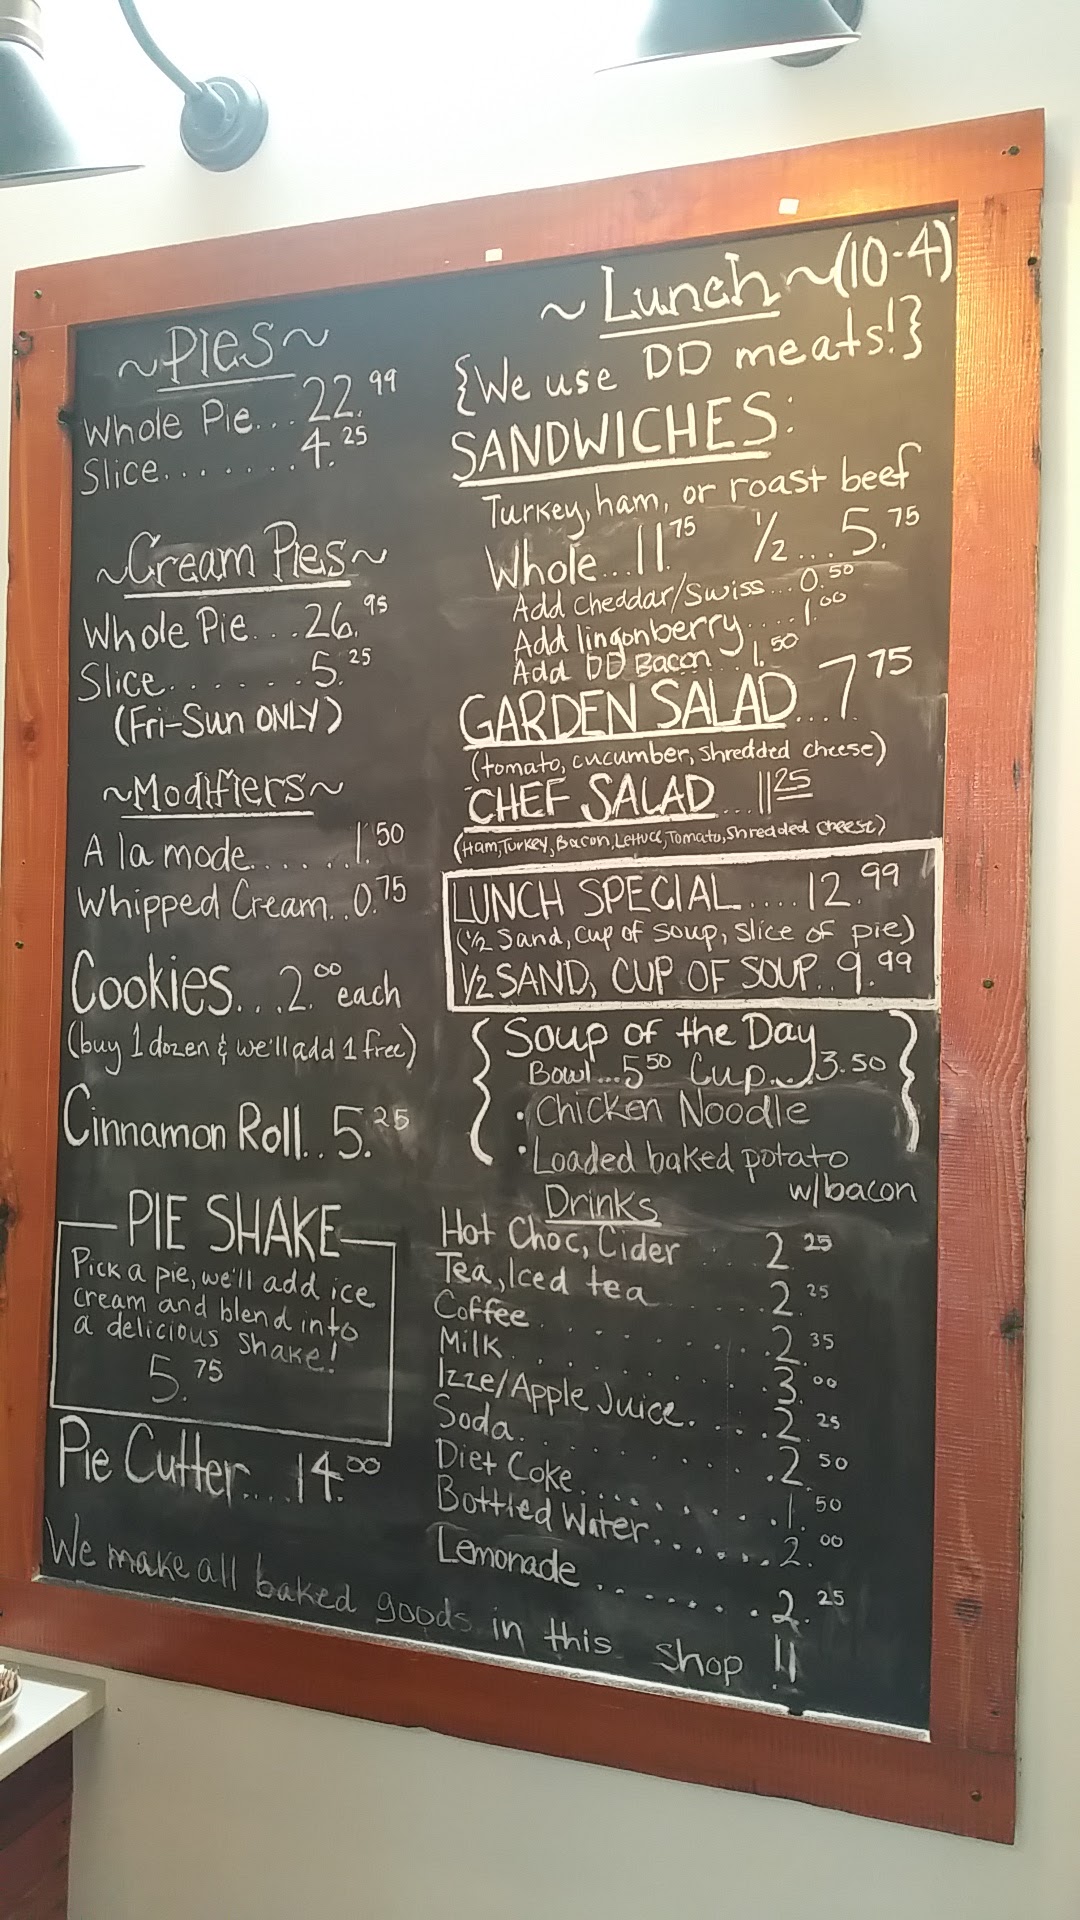 ~Pies~
Whole Pie... 22.99
Slice....... 4.25
~Cream Pies~
Whole Pie...26.95
Slice.......5.25
(Fri-Sun ONLY)
~Modifiers~
A la mode......1.50
Whipped Cream..0.75
Cookies...2.00 each
(buy 1 dozen & we'll add 1 free)
Cinnamon Roll..5.25
PIE SHAKE
Pick a pie, we'll add ice
cream and blend into
a delicious shake!
5.75
Pie Cutter....14.00
~Lunch~(10-4)
{We use DD meats!}
SANDWICHES:
Turkey, ham, or roast beef
Whole...11.75 1/2...5.75
Add cheddar/Swiss...0.50
Add lingonberry....1.00
Add DD Bacon...1.50
GARDEN SALAD...7.75
(tomato, cucumber, shredded cheese)
CHEF SALAD...11.25
(Ham, Turkey, Bacon, Lettuce, Tomato, Shredded cheese)
LUNCH SPECIAL....12.99
(1/2 Sand, cup of soup, slice of pie)
1/2 SAND, CUP OF SOUP..9.99
{Soup of the Day}
Bowl...5.50 Cup...3.50
• Chicken Noodle
• Loaded baked potato
w/bacon
Drinks
Hot Choc, Cider...2.25
Tea, Iced tea......2.25
Coffee.........2.35
Milk.........3.00
Izze/Apple Juice....2.25
Soda.........2.50
Diet Coke........1.50
Bottled Water.......2.00
Lemonade........2.25
We make all baked goods in this shop !!